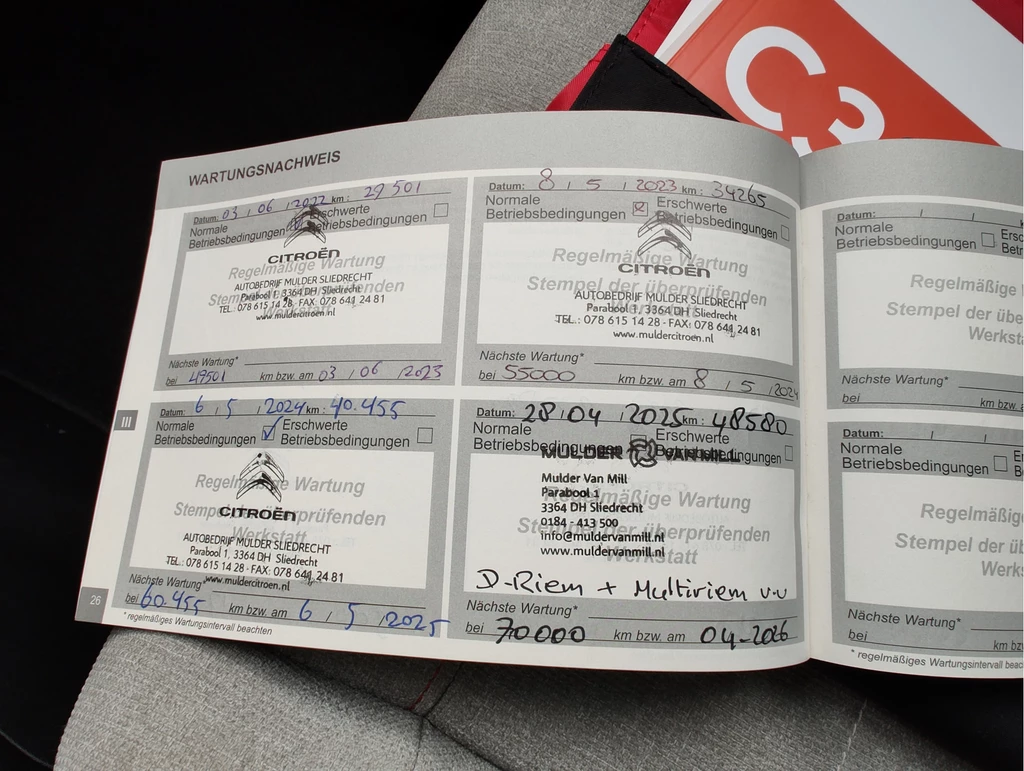 C3
WARTUNGSNACHWEIS
Datum: 03 / 06 / 2022 km : 29 501
Normale Betriebsbedingungen
Erschwerte Betriebsbedingungen
CITROËN
Regelmäßige Wartung
Stempel der überprüfenden Werkstatt
AUTOBEDRIJF MULDER SLIEDRECHT
Parabool 1, 3364 DH Sliedrecht
TEL.: 078 615 14 28 - FAX: 078 641 24 81
www.muldercitroen.nl
Nächste Wartung*
bei 49501 km bzw. am 03 / 06 / 2023
Datum: 8 / 5 / 2023 km : 34265
Normale
Betriebsbedingungen
Erschwerte
Betriebsbedingungen
CITROËN
Regelmäßige Wartung
Stempel der überprüfenden
Werkstatt
AUTOBEDRIJF MULDER SLIEDRECHT
Parabool 1, 3364 DH Sliedrecht
TEL.: 078 615 14 28 - FAX: 078 641 24 81
www.muldercitroen.nl
Nächste Wartung*
bei 55000 km bzw. am 8 / 5 / 2024
III
Datum: 6 / 5 / 2024 km : 40.455
Normale
Betriebsbedingungen
Erschwerte
Betriebsbedingungen
CITROËN
Regelmäßige Wartung
Stempel der überprüfenden
Werkstatt
AUTOBEDRIJF MULDER SLIEDRECHT
Parabool 1, 3364 DH Sliedrecht
TEL.: 078 615 14 28 - FAX: 078 641 24 81
www.muldercitroen.nl
Nächste Wartung*
bei 60.455 km bzw. am 6 / 5 / 2025
Datum: 28/04 / 2025 km : 48580
Normale
Betriebsbedingungen
Erschwerte
Betriebsbedingungen
MULDER VAN MILL
Mulder Van Mill
Parabool 1
3364 DH Sliedrecht
0184 - 413 500
info@muldervanmill.nl
www.muldervanmill.nl
Regelmäßige Wartung
Stempel der überprüfenden
Werkstatt
D-Riem + Multiriem v.v
Nächste Wartung*
bei 70000 km bzw. am 04-2026
26
* regelmäßiges Wartungsintervall beachten
Datum: / /
Normale
Betriebsbedingungen
Regelmäßige
Stempel der
Werkst
Nächste Wartung*
bei km bzw.
Datum: / /
Normale
Betriebsbedingungen
Regelmäßig
Stempel der
Werks
Nächste Wartung*
bei km bz
* regelmäßiges Wartungsintervall beach